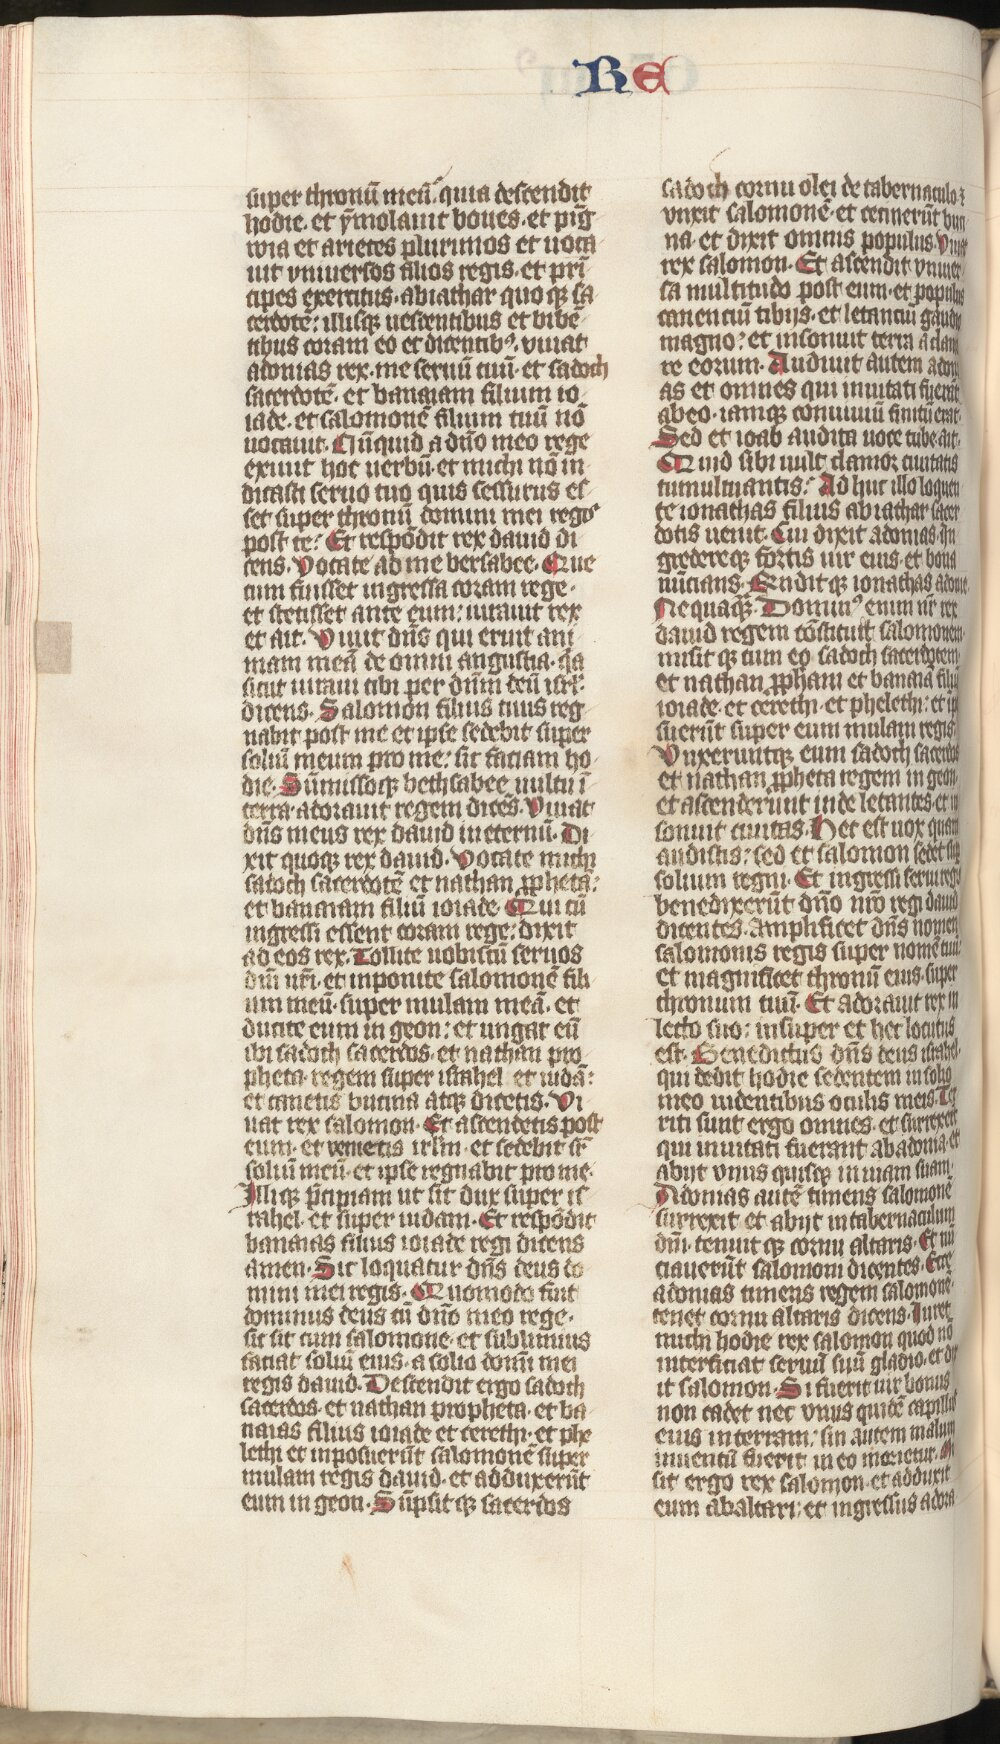 RE
super thronū meū. quia descendit
hodie. et ẏmolauit boues. et pīg
wia et arietes plurimos et uoca
uit vniuersos filios regis. et prī
cipes exercitus. abiathar quoqꝫ sa
cerdotē: illisqꝫ uescentibus et bibē
tibus coram eo et dicentibꝰ. viuat
adonias rex. me seruū tuū. et sadoch
sacerdotē. et banaiam filium io
iade. et salomonē filium tuū nō
uocauit. Nūquid a dn̄o meo rege
exiuit hoc uerbū. et michi nō in
dicasti seruo tuo quis sessurus es
set super thronū domini mei regis
post te? Et respōdit rex dauid di
cens. Vocate ad me bersabee. Que
cum fuisset ingressa coram rege.
et stetisset ante eum: iurauit rex
et ait. Viuit dn̄s qui eruit ani
mam meā de omni angustia. qa
sicut iuraui tibi per dn̄m deū isrl.
dicens. Salomon filius tuus reg
nabit post me et ipse sedebit super
soliū meum pro me: sic faciam ho
die. Sūmissoqꝫ bethsabee uultu ī
terra. adorauit regem dicēs. Viuat
dn̄s meus rex dauid in eternū. Di
xit quoqꝫ rex dauid. Vocate michi
sadoch sacerdotē et nathan ꝓphetā:
et banaiam filiū ioiade. Qui cū
ingressi essent coram rege: dixit
ad eos rex. Tollite uobiscū seruos
dn̄i ur̄i. et inponite salomonē fili
um meū. super mulam meā. et
ducite eum in geon: et ungat eū
ibi sadoch sacerdos. et nathan pro
pheta. regem super israhel et iudā:
et canetis bucina atqꝫ dicetis. Vi
uat rex salomon. Et ascendetis post
eum. et venietis irl̄m. et sedebit sr̄
soliū meū. et ipse regnabit pro me.
Illiqꝫ p̄cipiam ut sit dux super is
rahel. et super iudam. Et respōdit
banaias filius ioiade regi dicens
amen. Sic loquatur dn̄s deus do
mini mei regis. Quomodo fuit
dominus deus cū dn̄o meo rege.
sic sit cum salomone. et sublimius
faciat soliū eius. a solio domī mei
regis dauid. Descendit ergo sadoch
sacerdos. et nathan propheta. et ba
naias filius ioiade et cerethi. et phe
lethi et inposuerūt salomonē super
mulam regis dauid. et adduxerūt
eum in geon. Sūpsit qꝫ sacerdos
sadoch cornu olei de tabernaculo. ⁊
vnxit salomonē. et cecinerūt buci
na. et dixit omnis populus. Viuat
rex salomon. Et ascendit vniuer
sa multitudo post eum. et populus
canenciū tibijs. et letanciū gaudio
magno: et insonuit terra a clamo
re eorum. Audiuit autem adoni
as et omnes qui inuitati fuerāt
abeo. iamqꝫ conuiuiū finitū erat.
Sed et ioab audita uoce tube. ait.
Quid sibi uult clamor ciuitatis
tumultuantis? Ad huc illo loquen
te ionathas filius abiathar sacer
dotis uenit. Cui dixit adonias. in
gredereqꝫ fortis uir eius. et bona
nūcians. Rn̄dit qꝫ ionathas adonie.
Nequaqꝫ. Dominꝰ enim nr̄ rex
dauid regem cōstituit salomonem.
misit qꝫ cum eo sadoch sacerdotem.
et nathan ꝓpham et banaiā filiū
ioiade. et cerethi. et phelethi: et ip
suerūt super eum mulam regis.
Vnxeruntqꝫ eum sadoch sacerdos
et nathan ꝓpheta regem in geon.
et ascenderunt inde letantes. et in
sonuit ciuitas. Hec est uox quam
audistis: sed et salomon sedet sup
solium regni. Et ingressi serui regis
benedixerūt dn̄o nr̄o regi dauid
dicentes. Amplificet dn̄s nomen
salomonis regis super nomē tuū.
et magnificet thronū eius. super
thronum tuū. Et adorauit rex in
lecto suo: insuper et hec locutus
est. Benedictus dn̄s deus israhel.
qui dedit hodie sedentem in solio
meo uidentibus oculis meis. Te
riti sunt ergo omnes. et surrexert
qui inuitati fuerant ab adonia. et
abijt vnus quisqꝫ in uiam suam.
Adonias autē timens salomonē
surrexit et abijt in tabernaculum
dn̄i. tenuit qꝫ cornu altaris. Et nū
ciauerūt salomoni dicentes. Ecce
adonias timens regem salomonē.
tenet cornu altaris dicens. Iuret
michi hodie rex salomon quod nō
interficiat seruū suū gladio. et dix
it salomon. Si fuerit uir bonus
non cadet nec vnus quidē capillus
eius in terram: sin autem malum
inuentū fuerit in eo morietur. Mi
sit ergo rex salomon. et adduxit
eum ab altari: et ingressus adora